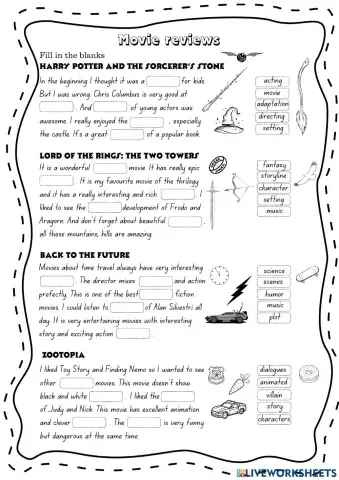 Movie reviews
Fill in the blanks
HARRY POTTER AND THE SORCERER'S STONE
In the beginning I thought it was a for kids.
But I was wrong. Chris Columbus is very good at
. And of young actors was
awesome. I really enjoyed the , especially
the castle. It's a great of a popular book.
acting
movie
adaptation
directing
setting
LORD OF THE RINGS: THE TWO TOWERS
It is a wonderful movie. It has really epic
. It is my favourite movie of the thrilogy
and it has a really interesting and rich . I
liked to see the development of Frodo and
Aragorn. And don't forget about beautiful ,
all these mountains, hills are amazing.
fantasy
storyline
character
setting
music
BACK TO THE FUTURE
Movies about time travel always have very interesting
. The director mixes and action
prefectly. This is one of the best fiction
movies. I could listen to of Alan Silvestri all
day. It is very entertaining movies with interesting
story and exciting action .
science
scenes
humor
music
plot
ZOOTOPIA
I liked Toy Story and Finding Nemo so I wanted to see
other movies. This movie doesn't show
black and white . I liked the
of Judy and Nick. This movie has excellent animation
and clever . The is very funny
but dangerous at the same time.
dialogues
animated
villain
story
characters
LIVEWORKSHEETS